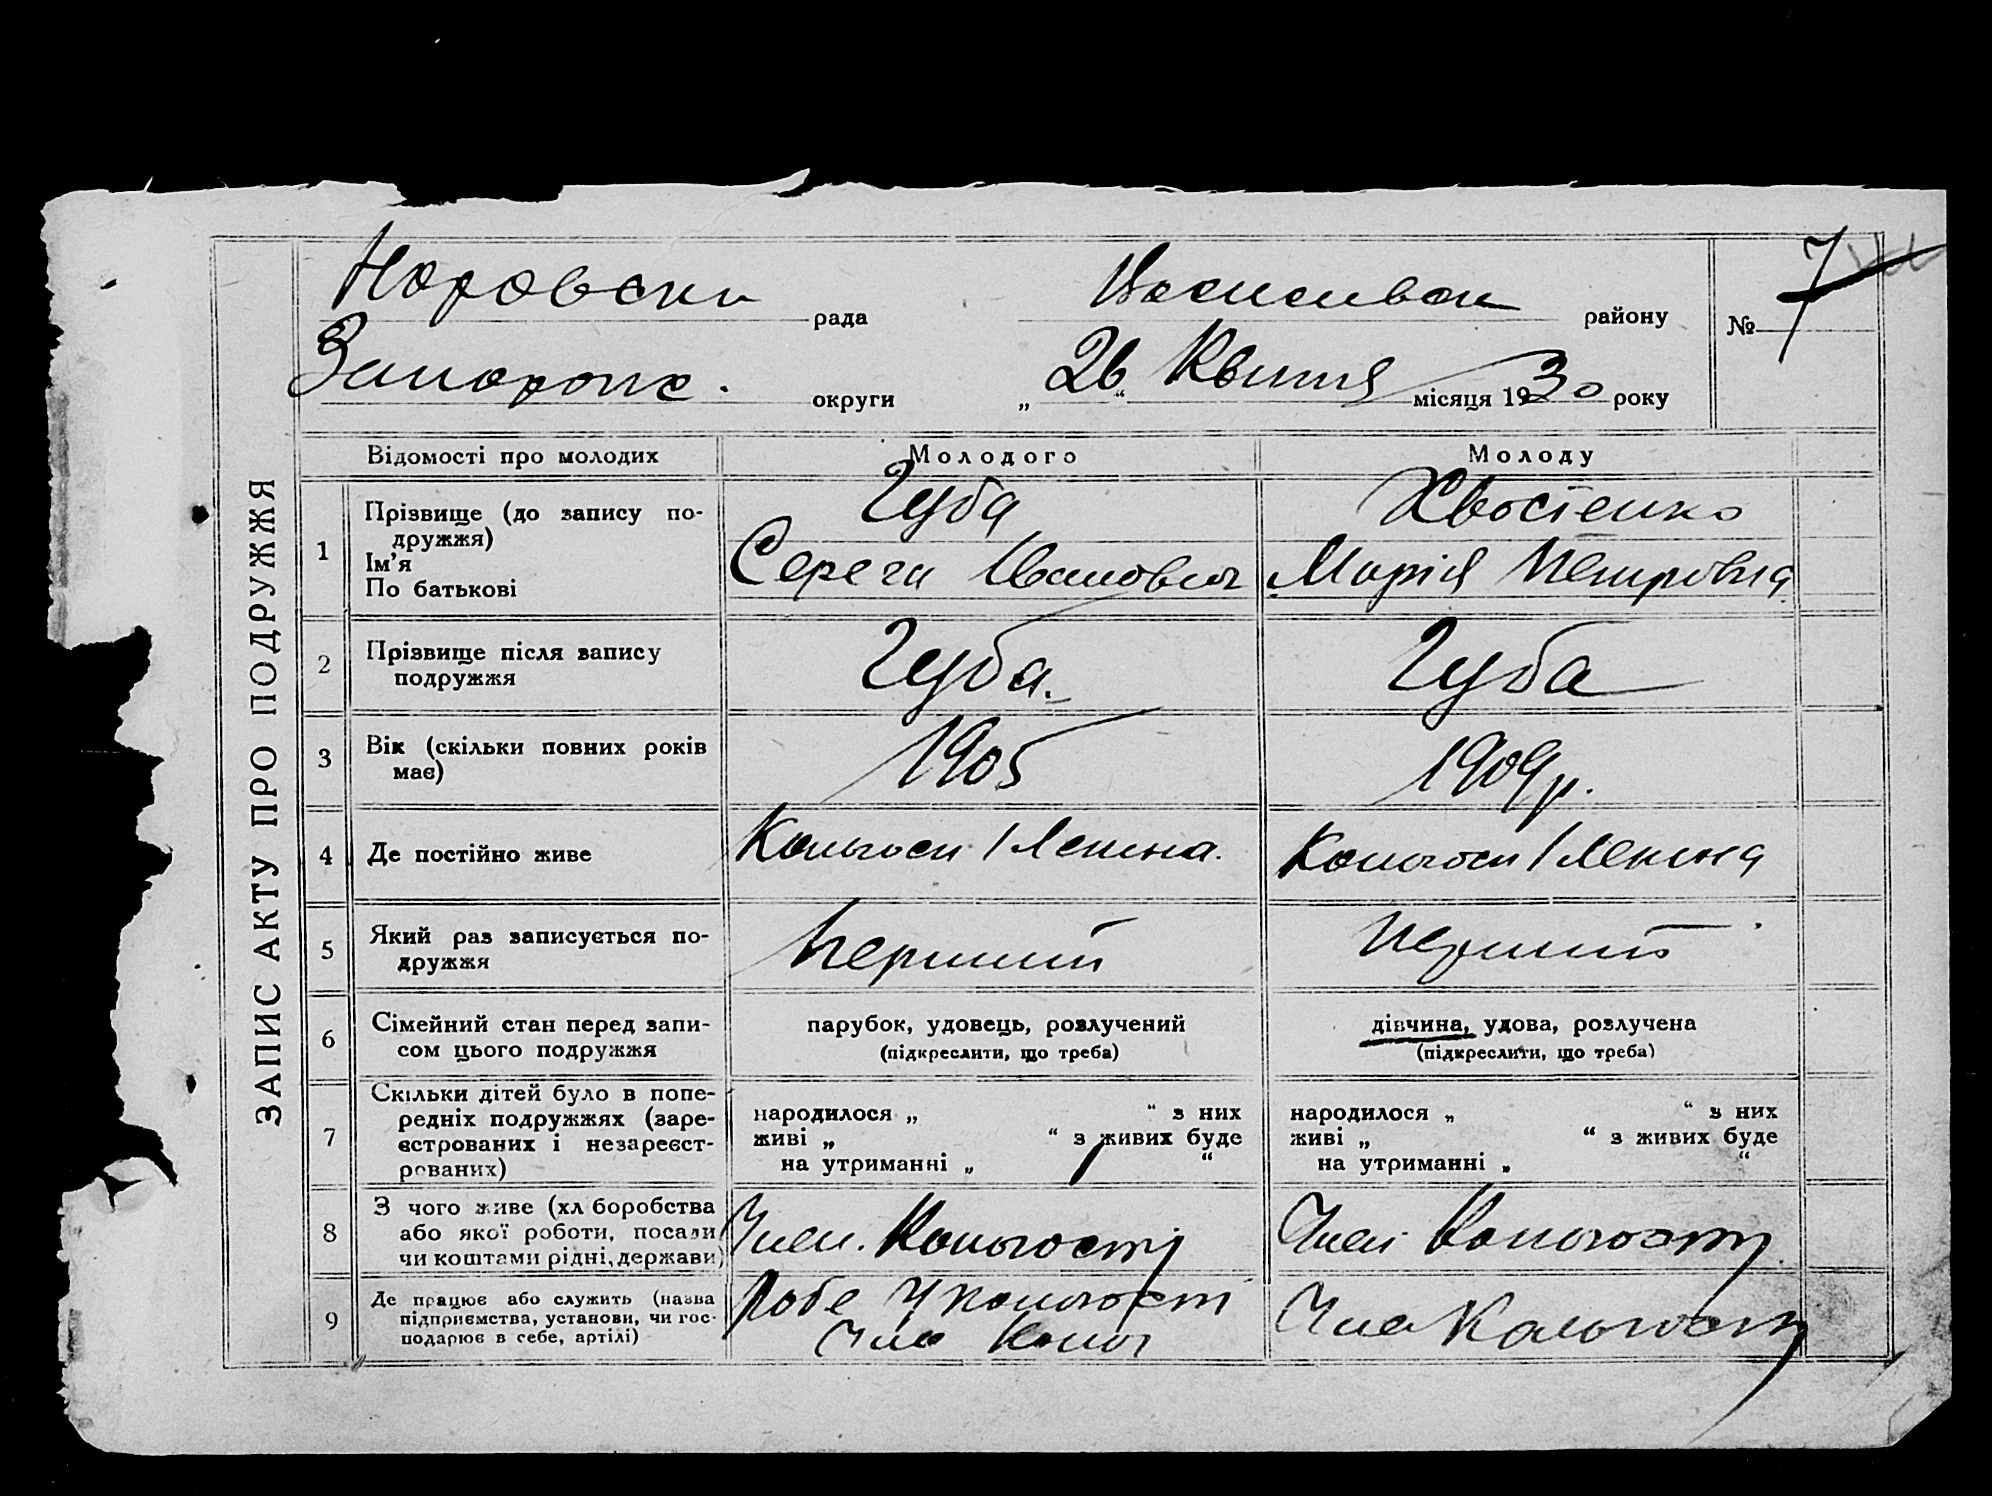 рада
району
№ 7
округи
„ 26 “ Квітня місяця 1930 року
ЗАПИС АКТУ ПРО ПОДРУЖЖЯ
Відомості про молодих
Молодого
Молоду
1
Прізвище (до запису по-
дружжя)
Ім'я
По батькові
Губа
Сергеи Иванович
Хвостенко
Марія Петровна
2
Прізвище після запису
подружжя
Губа.
Губа
3
Вік (скільки повних років
має)
1905
1909 р.
4
Де постійно живе
Ленина.
Ленина
5
Який раз записується по-
дружжя
Перший
Перший
6
Сімейний стан перед запи-
сом цього подружжя
парубок, удовець, розлучений
(підкреслити, що треба)
дівчина, удова, розлучена
(підкреслити, що треба)
7
Скільки дітей було в попе-
редніх подружжях (заре-
єстрованих і незареєст-
рованих)
народилося „ “ з них
живі „ “ з живих буде
на утриманні „ “
народилося „ “ з них
живі „ “ з живих буде
на утриманні „ “
8
З чого живе (хліборобства
або якої роботи, посади
чи коштами рідні, держави)
Член. Колгоспу
Член Колгоспу
9
Де працює або служить (назва
підприємства, установи, чи гос-
подарює в себе, артілі)
Робе у колгоспі